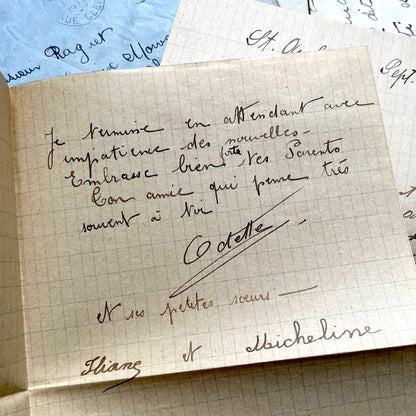 Raguet
St.
Sept.
Je termine en attendant avec
impatience des nouvelles -
Embrasse bien forts tes Parents
Ton amie qui pense très
souvent à toi
Odette
et ses petites sœurs —
et Micheline